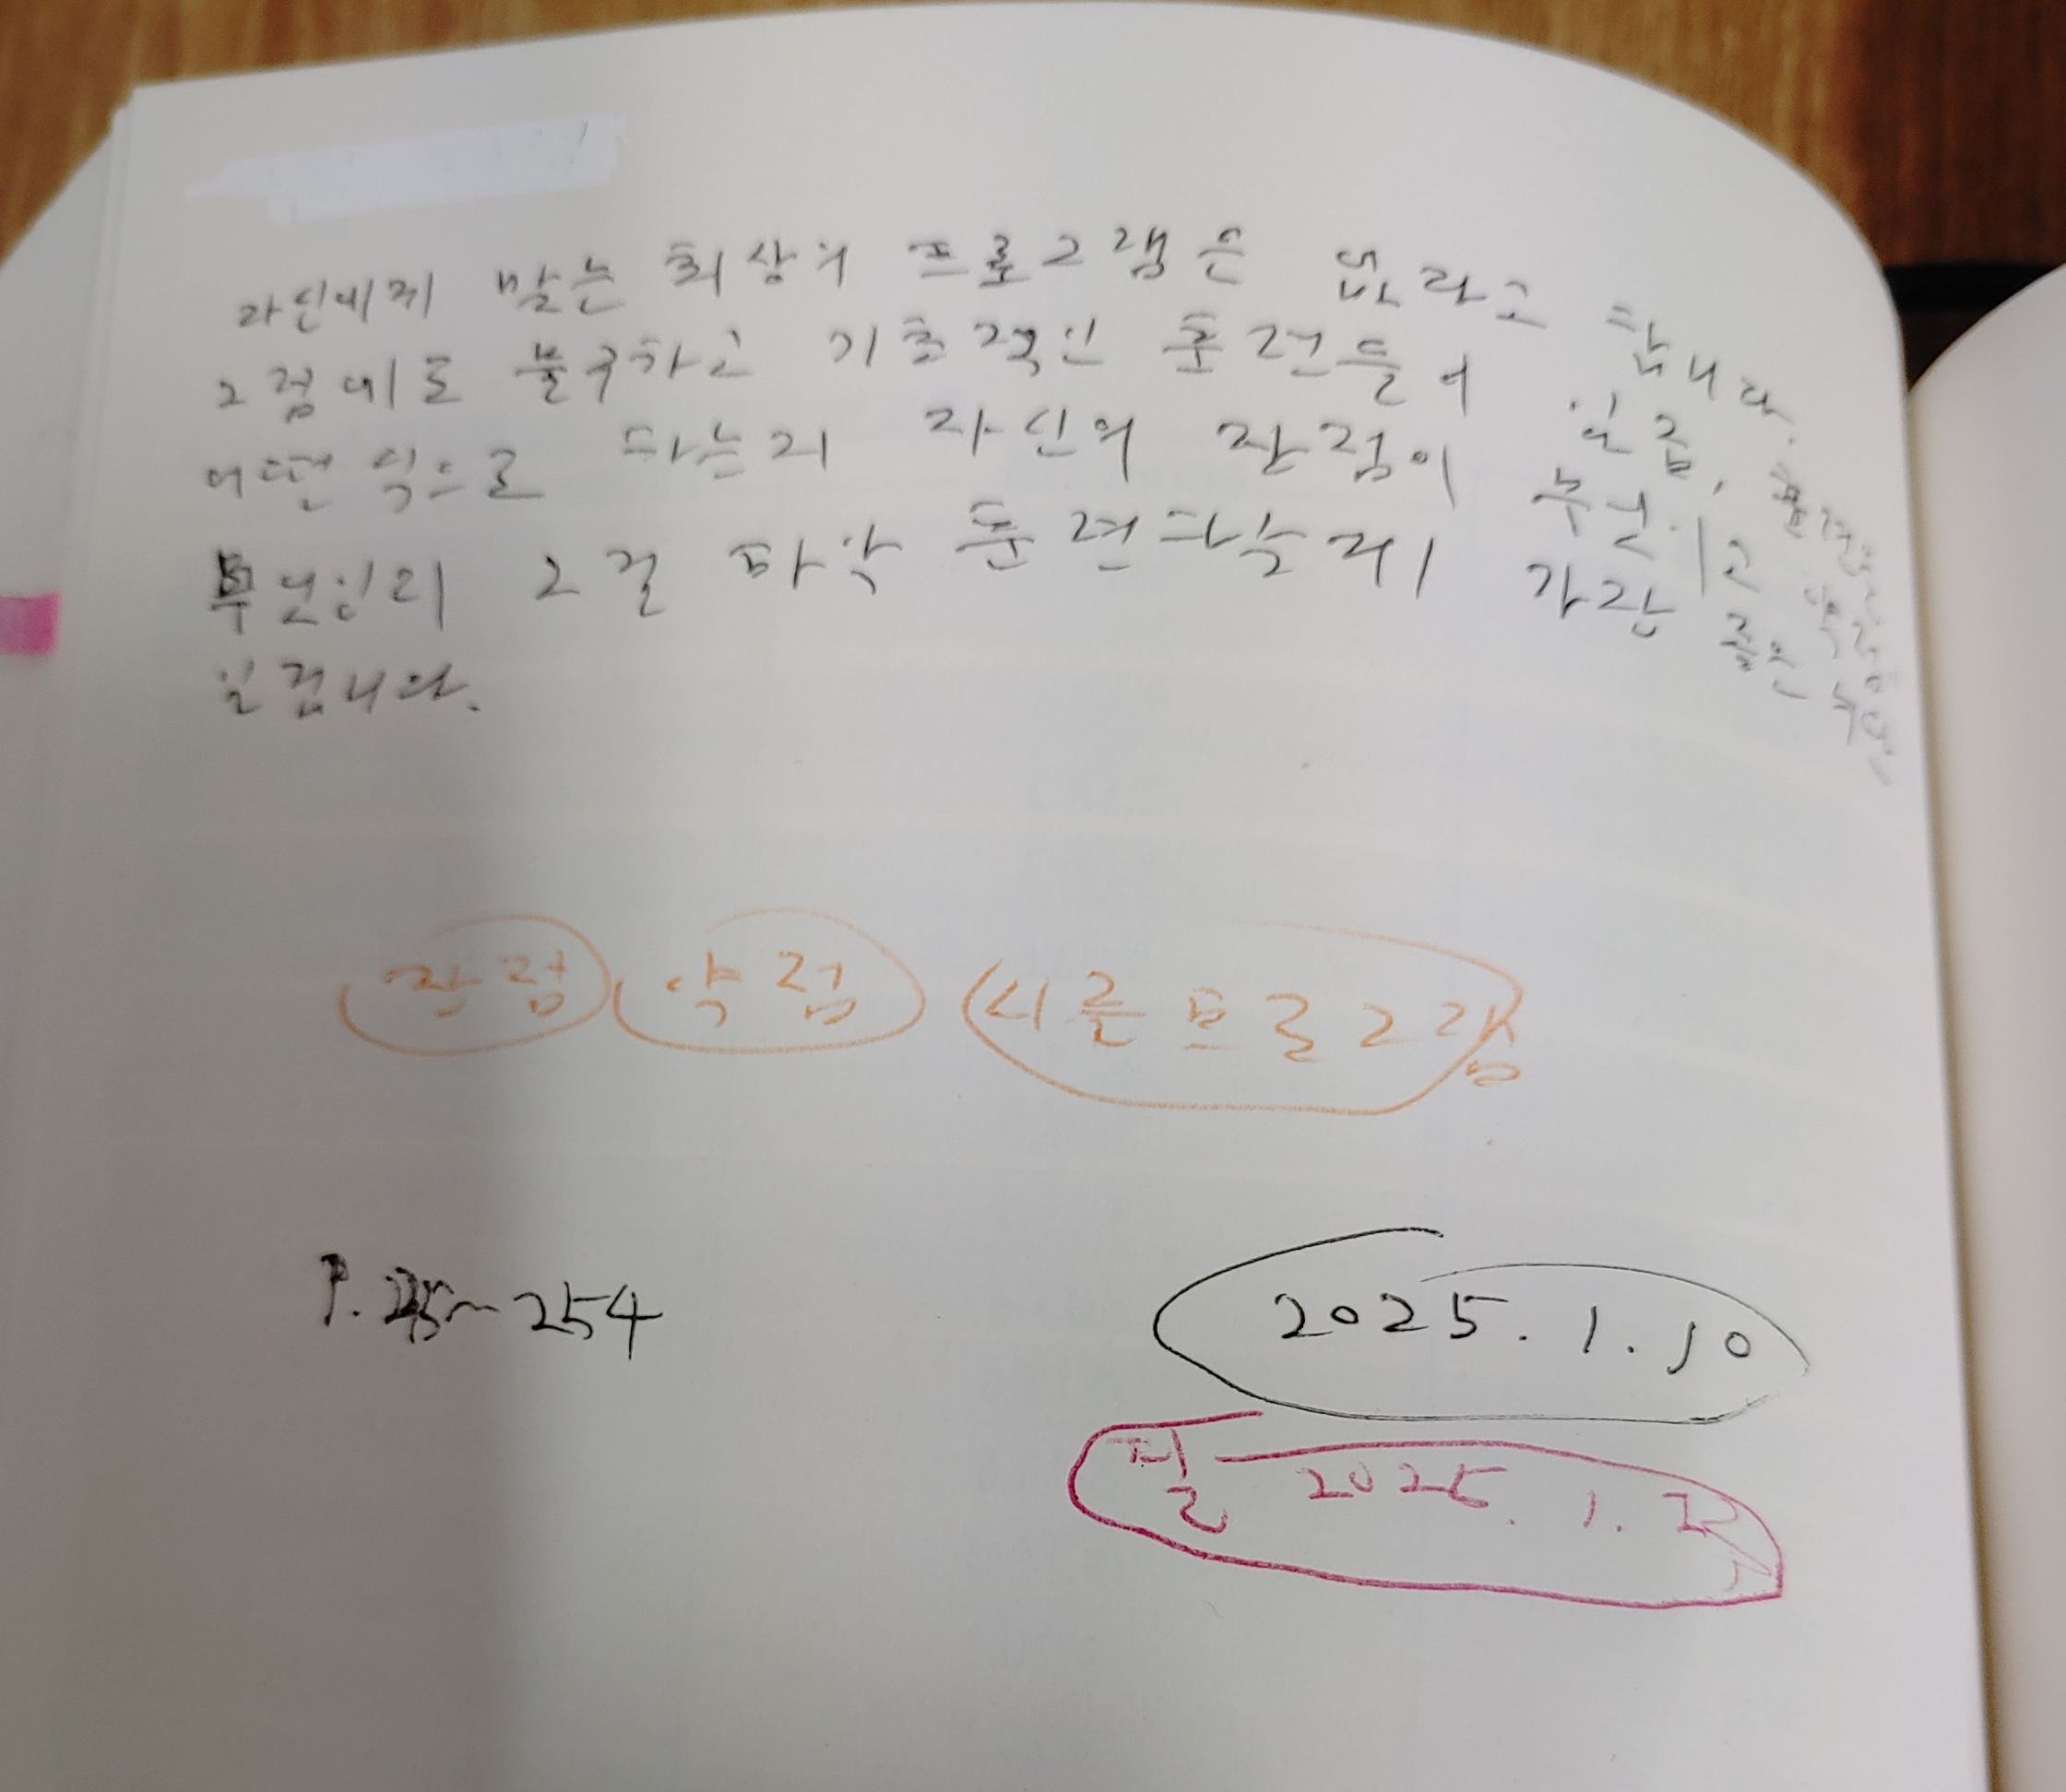 자신에게 맞는 최상의 프로그램은 없다고 합니다.
그럼에도 불구하고 기초적인 훈련들이 있죠, 훈련을
어떤 식으로 하는지 자신의 장점이 무엇이고 약점은
무엇인지 그걸 파악 훈련하는게 가장 좋은 수단
일겁니다.
장점 약점 시즌프로그램
P. ~254
2025.1.10
필 2025.1.